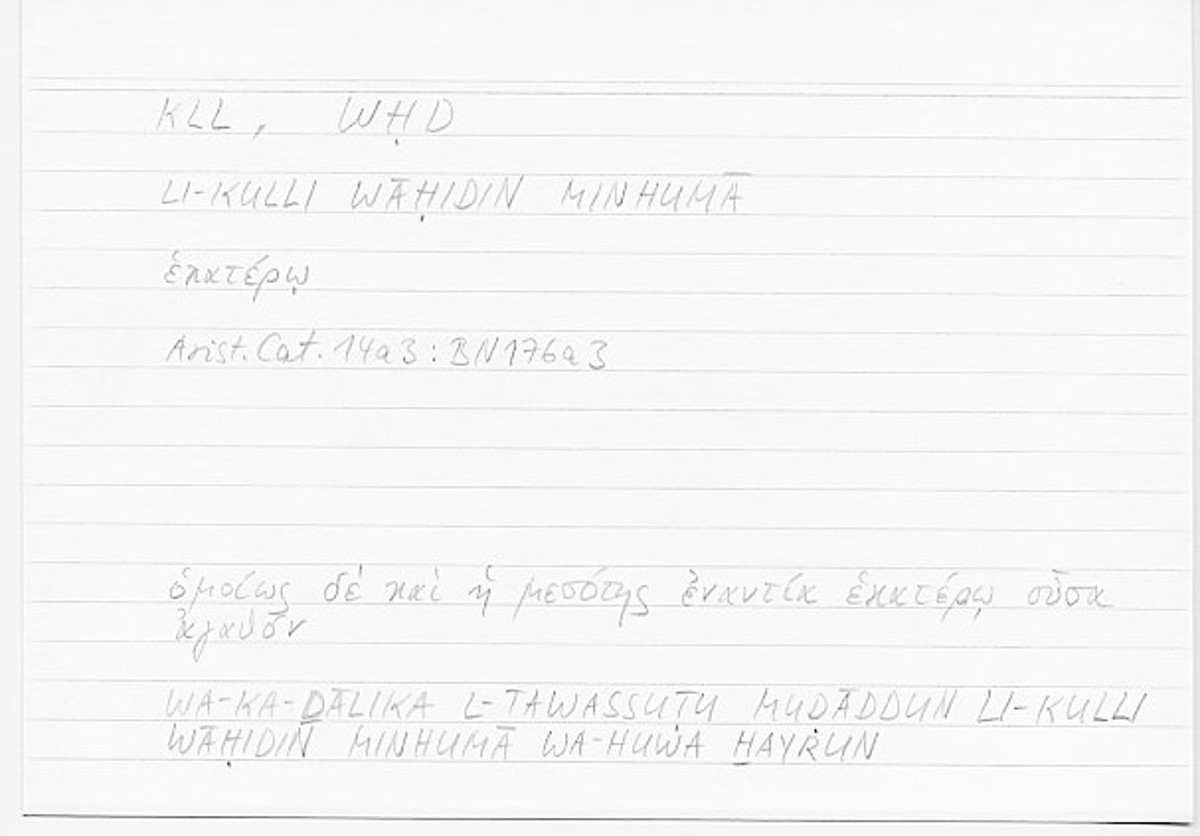 KLL, WḤD
LI-KULLI WĀḤIDIN MINHUMĀ
ἑκατέρῳ
Arist. Cat. 14a3 : BN176a3
ὁμοίως δὲ καὶ ἡ μεσότης ἐναντία ἑκατέρῳ οὖσα
ἀγαθόν
WA-KA-ḎĀLIKA L-TAWASSUṬU MUḌĀDDUN LI-KULLI
WĀḤIDIN MINHUMĀ WA-HUWA ḪAYRUN